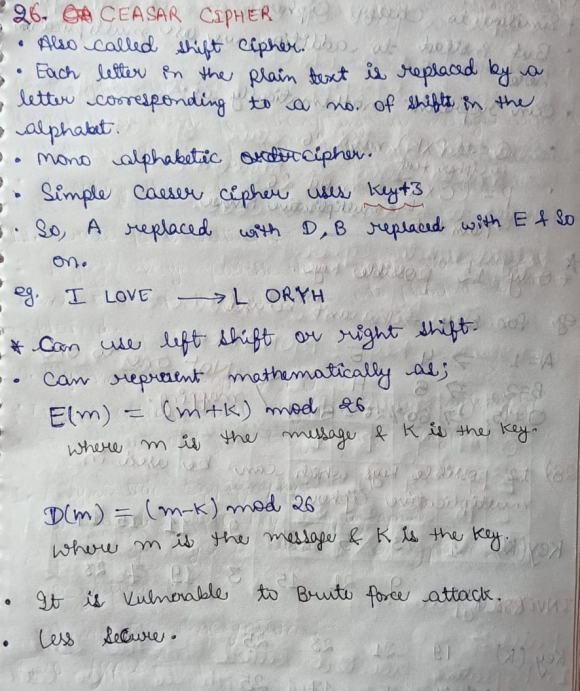 26. CEASAR CIPHER
• Also called shift cipher.
• Each letter in the plain text is replaced by a
letter corresponding to a no. of shifts in the
alphabet.
• Mono alphabetic cipher.
• Simple Caeser cipher uses Key+3
• So, A replaced with D, B replaced with E & So
on.
eg. I LOVE → L ORYH
* Can use left shift or right shift.
• Can represent mathematically as;
E(m) = (m+k) mod 26
where m is the message & K is the key.
D(m) = (m-k) mod 26
where m is the message & K is the key.
• It is Vulnerable to Brute force attack.
• Less Secure.